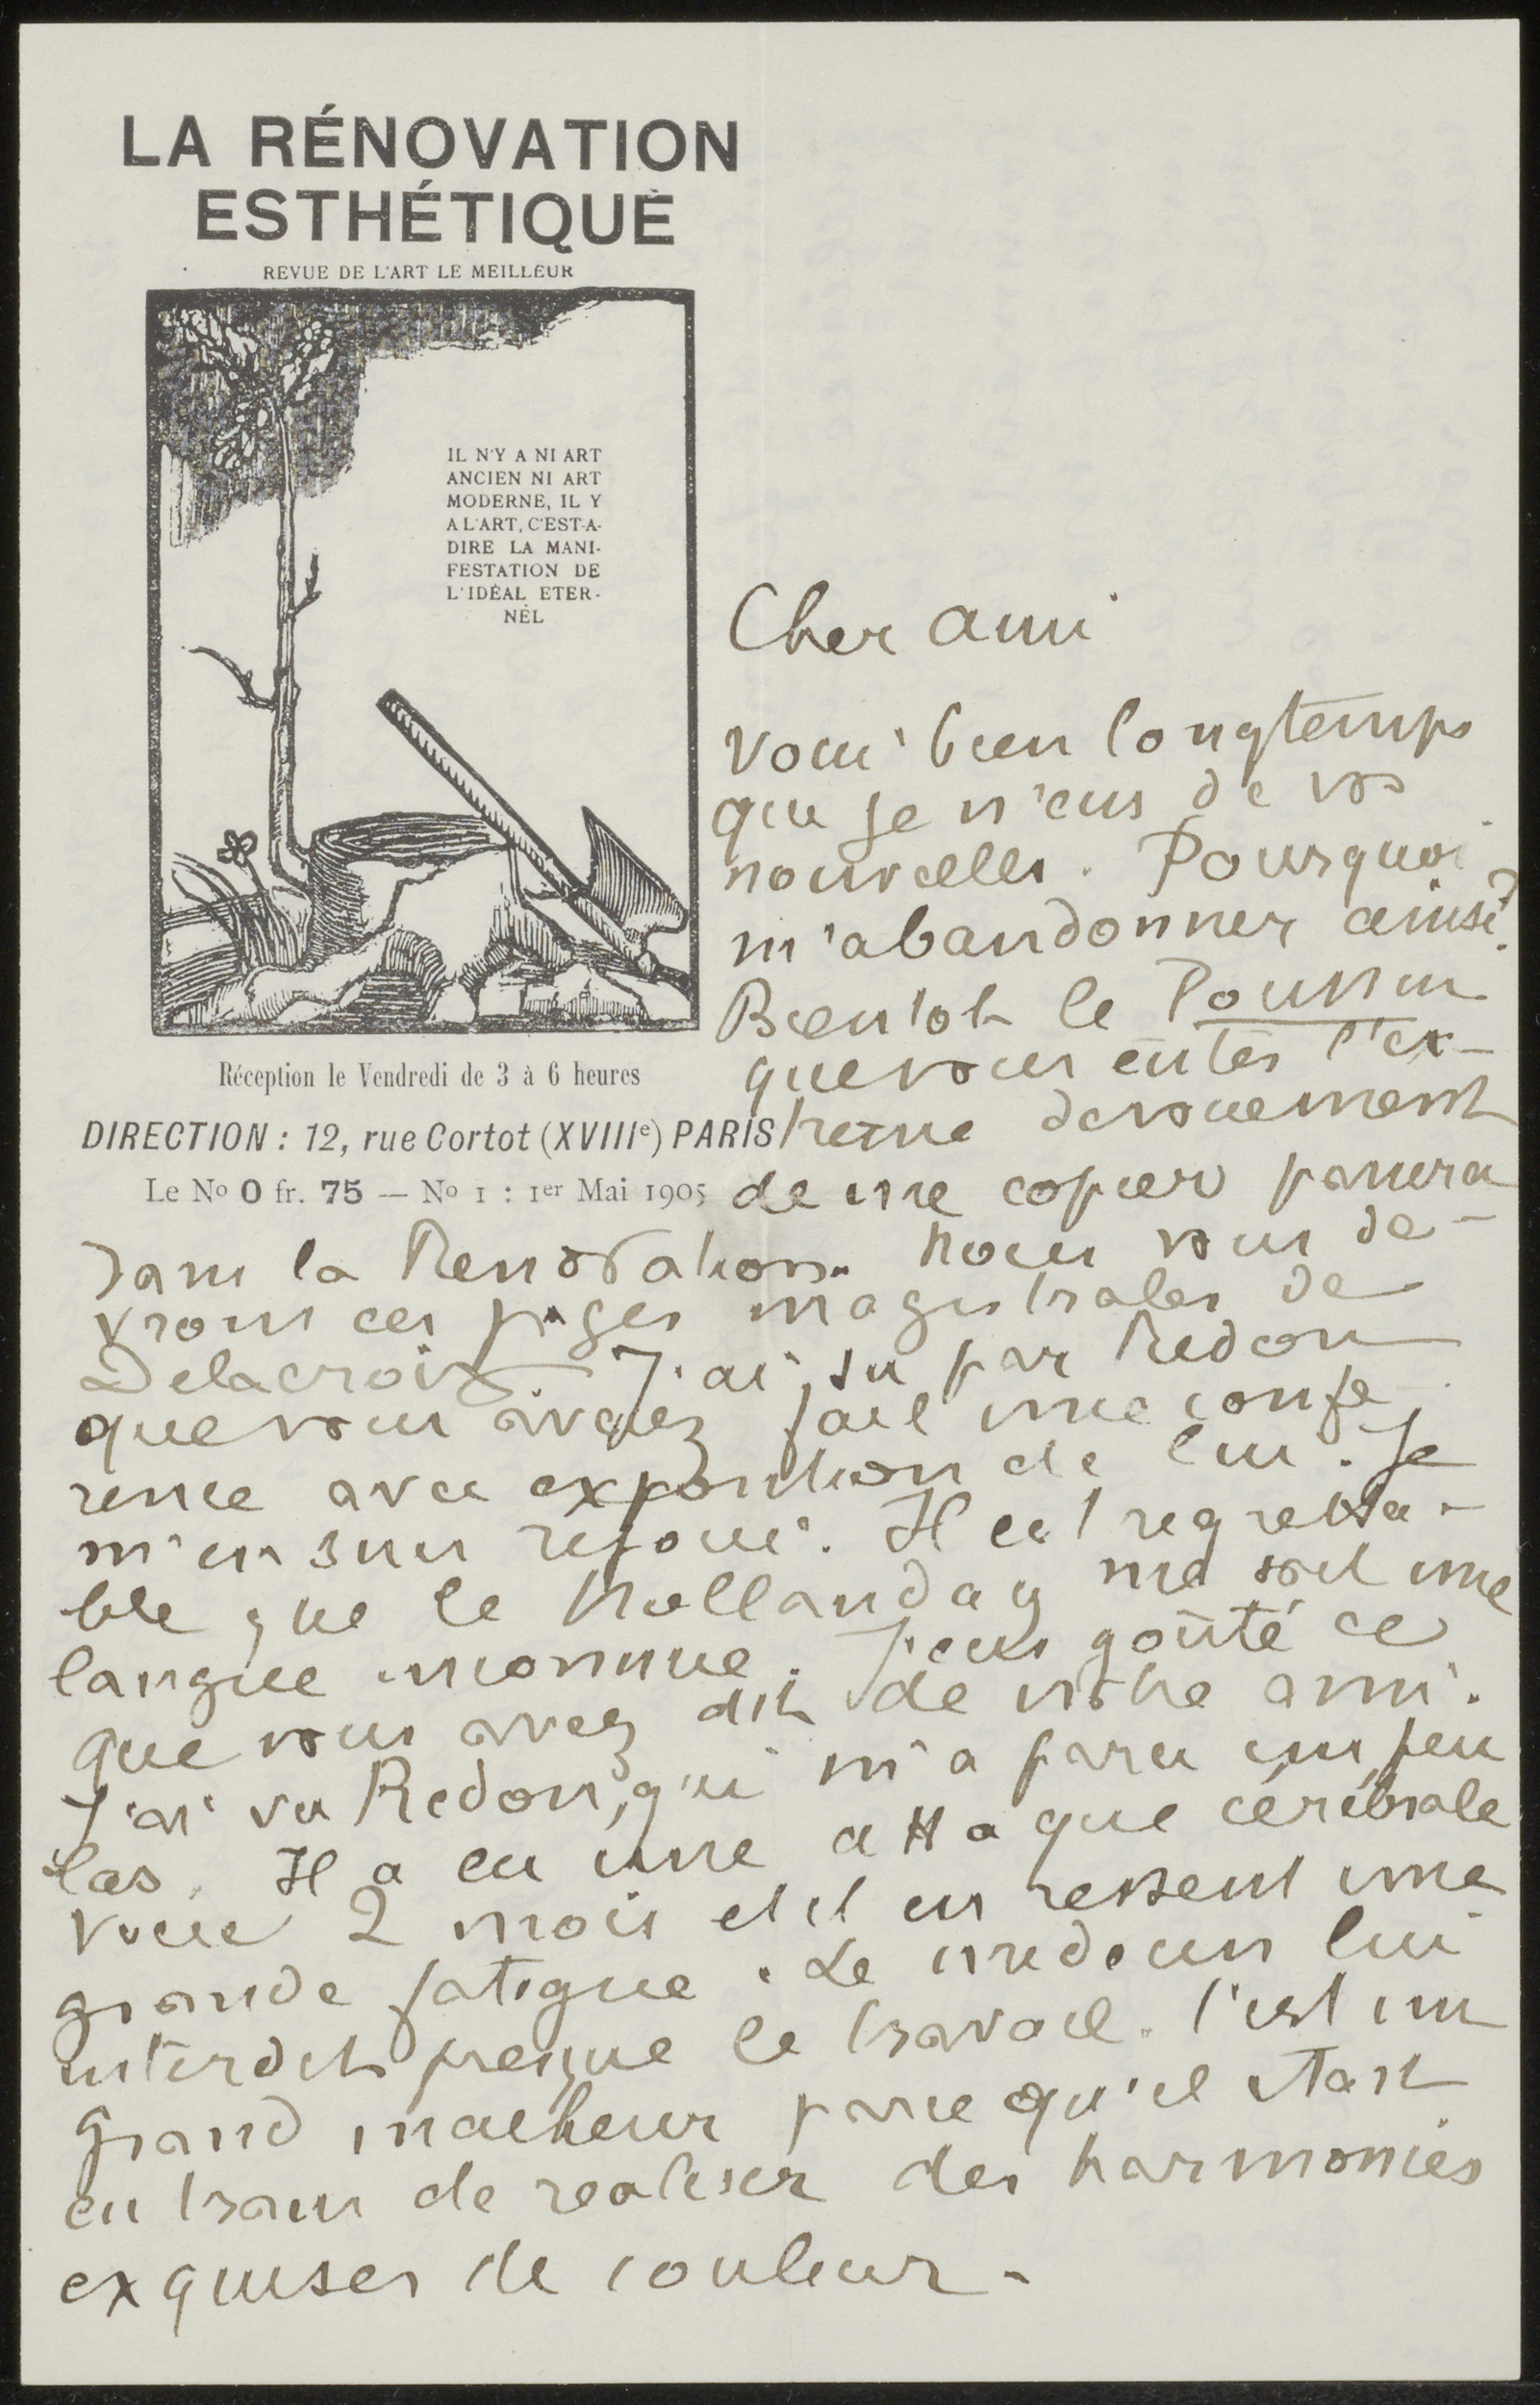 LA RÉNOVATION
ESTHÉTIQUE
REVUE DE L'ART LE MEILLEUR
IL N'Y A NI ART
ANCIEN NI ART
MODERNE, IL Y
A L'ART, C'EST-A-
DIRE LA MANI-
FESTATION DE
L'IDÉAL ETER-
NEL
Réception le Vendredi de 3 à 6 heures
DIRECTION : 12, rue Cortot (XVIIIe) PARIS
Le No 0 fr. 75 — No 1 : 1er Mai 1905
Cher ami
Voici bien longtemps
que je n'eus de vos
nouvelles. Pourquoi
m'abandonner ainsi?
Bientot le Poussin
que vous eutes l'ex-
treme devouement
de me copier passera
dans la Renovation. Nous vous de-
vrons ces pages magistrales de
Delacroix. J'ai su par Redon
que vous aviez fait une confe-
rence avec exposition de lui. Je
m'en suis rejoui. Il est regretta-
ble que le hollanday me soit une
langue inconnue. J'eus goûté ce
que vous avez dit de notre ami.
J'ai vu Redon, qui m'a paru un peu
las. Il a eu une attaque cérébrale
voici 2 mois et il en ressent une
grande fatigue. Le medecin lui
interdit presque le travail. C'est un
grand malheur parce qu'il etait
en train de realiser des harmonies
exquises de couleur.